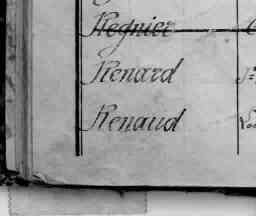 Regnier
Renard
Renaud